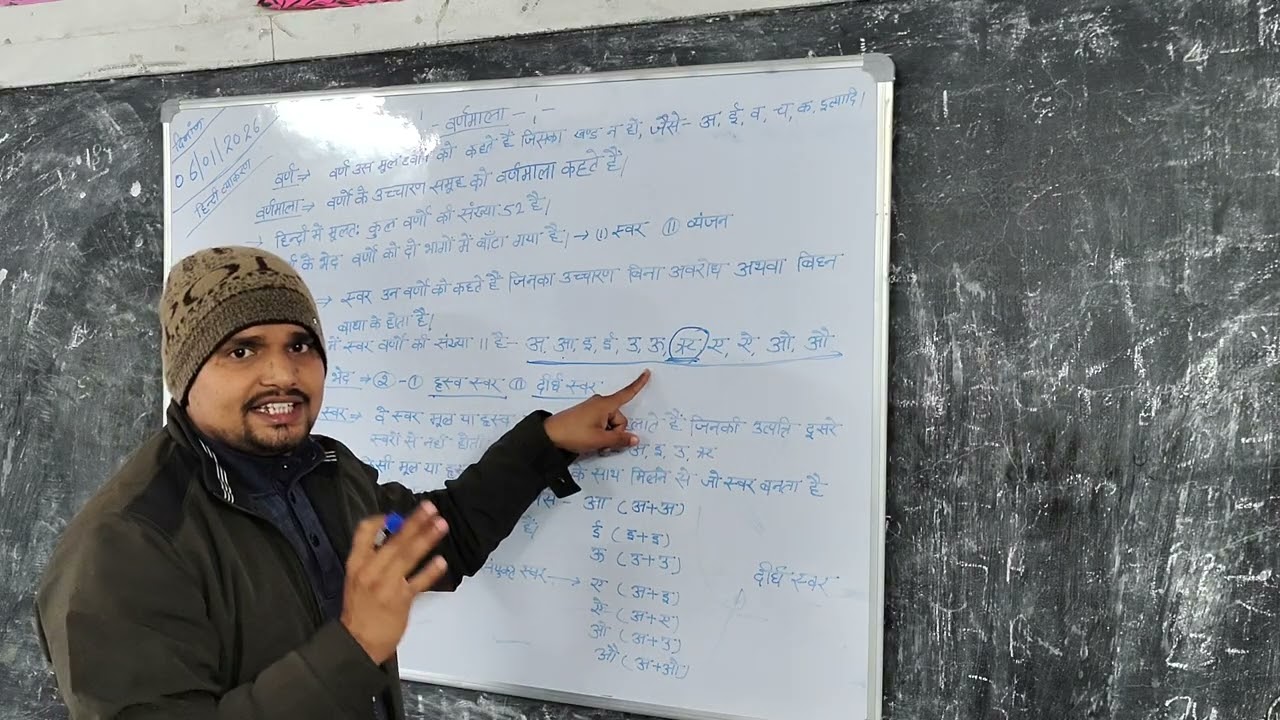 दिनांक
06/01/2026
हिन्दी व्याकरण
वर्णमाला
वर्ण → वर्ण उस मूल ध्वनि को कहते हैं जिसका खण्ड न हो, जैसे- अ, ई, व, च, क, इत्यादि।
वर्णमाला → वर्णों के उच्चारण समूह को वर्णमाला कहते हैं।
→ हिन्दी में मूलतः कुल वर्णों की संख्या 52 है।
के भेद वर्णों को दो भागों में बाँटा गया है। → (i) स्वर (ii) व्यंजन
→ स्वर उन वर्णों को कहते हैं जिनका उच्चारण बिना अवरोध अथवा विघ्न
बाधा के होता है।
में स्वर वर्णों की संख्या 11 है- अ, आ, इ, ई, उ, ऊ, ऋ, ए, ऐ, ओ, औ
भेद → 2 - (i) ह्रस्व स्वर (ii) दीर्घ स्वर
स्वर → वे स्वर मूल या ह्रस्व लाते हैं जिनकी उत्पति दूसरे
स्वरों से नहीं होती अ, इ, उ, ऋ
किसी मूल या के साथ मिलने से जो स्वर बनता है
आ (अ+अ)
है। ई (इ+इ)
ऊ (उ+उ)
संयुक्त स्वर → ए (अ+इ) दीर्घ स्वर
ऐ (अ+ए)
ओ (अ+उ)
औ (अ+ओ)